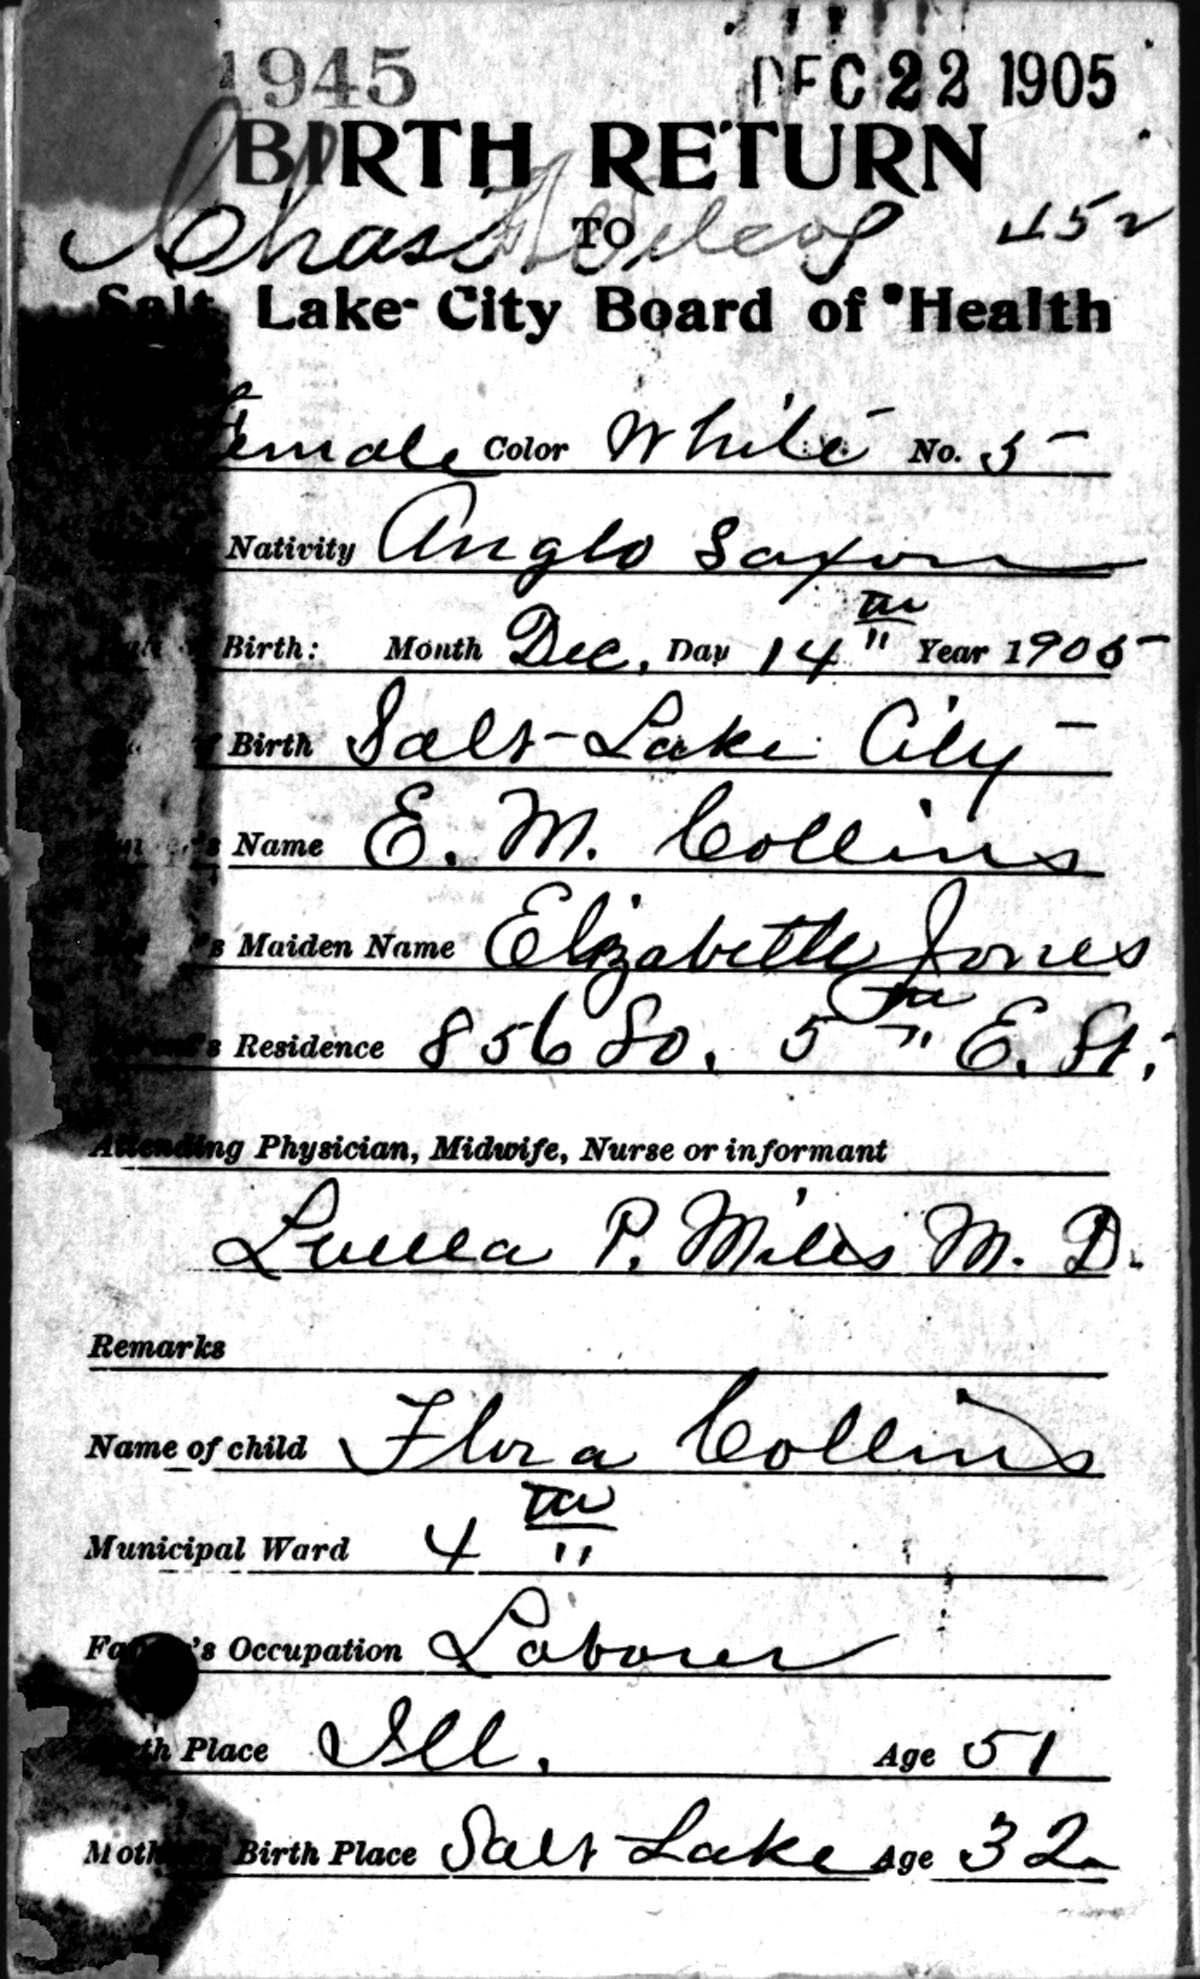 1945 DEC 22 1905
BIRTH RETURN
TO
Chas 452
Salt Lake City Board of Health
Female Color White No. 5
Nativity Anglo Saxon
Birth: Month Dec. Day 14th Year 1905
Birth Salt Lake City
Name E. M. Collins
's Maiden Name Elizabeth Jones
's Residence 856 So. 5th E. St.
Attending Physician, Midwife, Nurse or informant
Luella P. Miles M. D.
Remarks
Name of child Flora Collins
Municipal Ward 4th
Father's Occupation Laborer
Birth Place Ill. Age 51
Mother's Birth Place Salt Lake Age 32